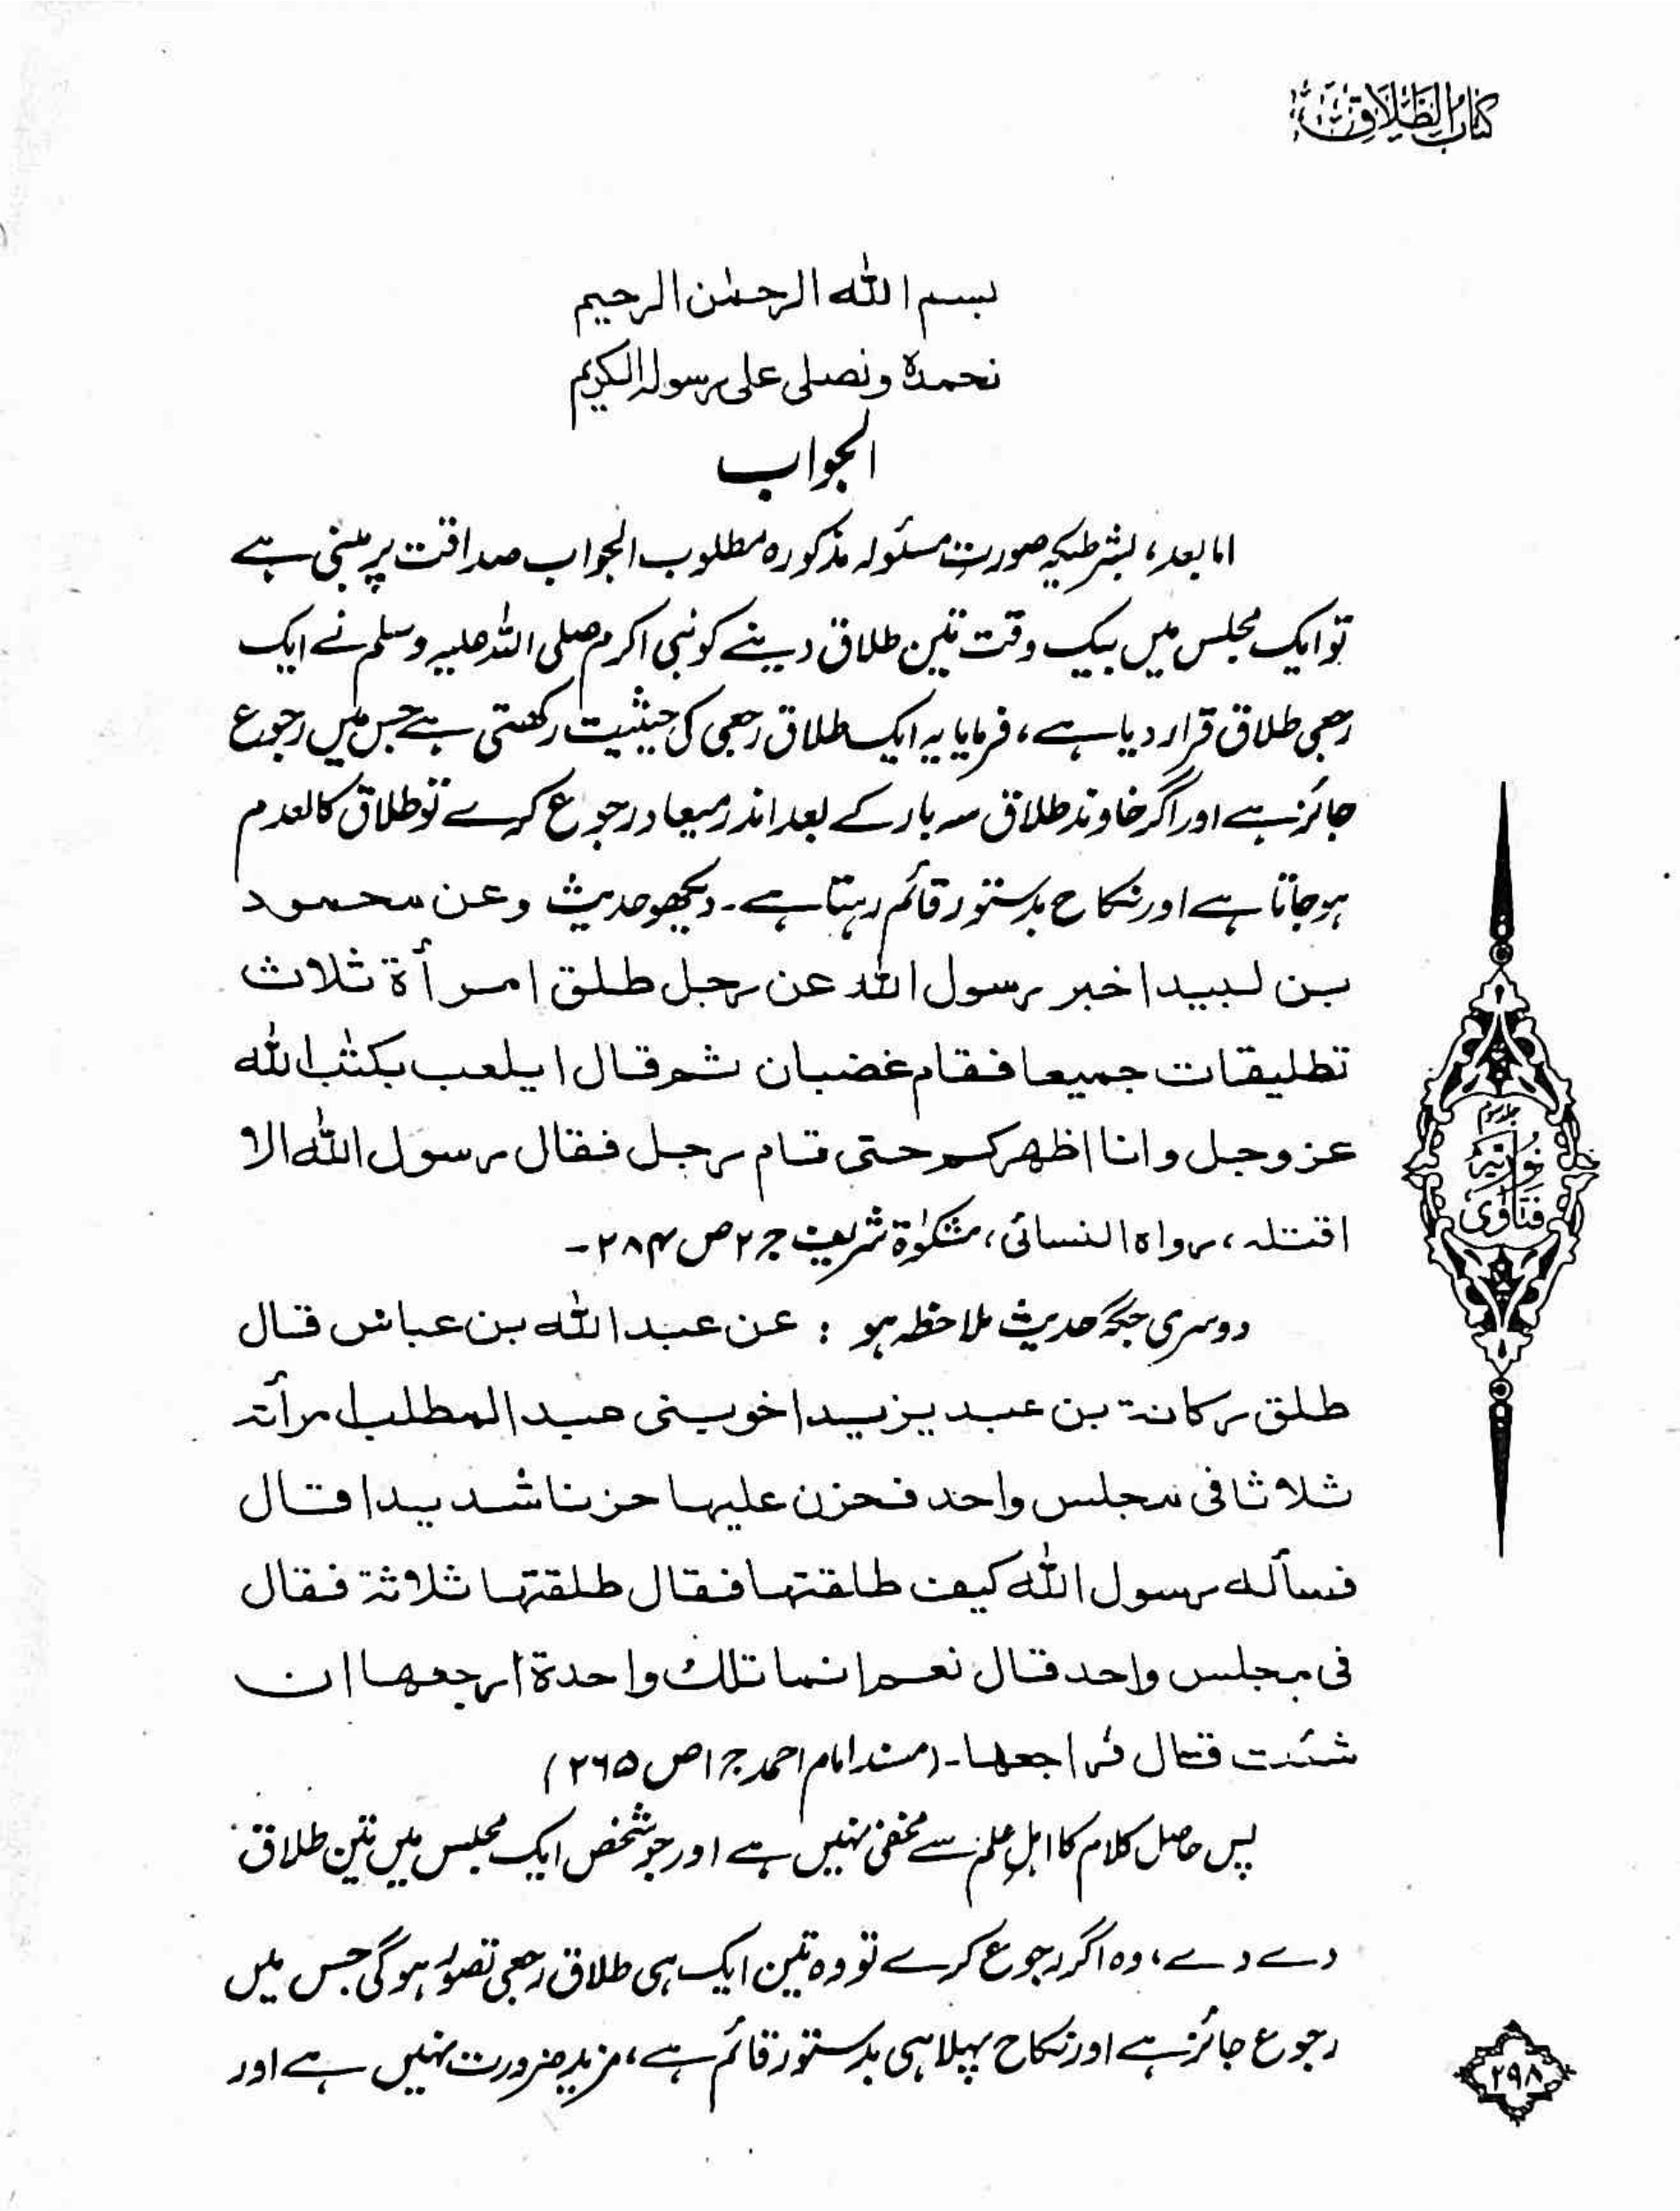 کتاب الطلاق
بسم اللہ الرحمٰن الرحیم
نحمدہٗ ونصلی علی رسولہ الکریم
الجواب
اما بعد، بشرطیکہ صورتِ مسئولہ مذکورہ مطلوب الجواب صداقت پر مبنی ہے
تو ایک مجلس میں بیک وقت تین طلاق دینے کو نبی اکرم صلی اللہ علیہ وسلم نے ایک
رجعی طلاق قرار دیا ہے، فرمایا یہ ایک طلاق رجعی کی حیثیت رکھتی ہے جس میں رجوع
جائز ہے اور اگر خاوند طلاق سہ بار کے بعد اندر میعاد رجوع کرے تو طلاق کالعدم
ہو جاتا ہے اور نکاح بدستور قائم رہتا ہے۔ دیکھو حدیث وعن محمود
بن لبید اخبر رسول اللہ عن رجل طلق امرأۃ ثلاث
تطلیقات جمیعا فقام غضبان ثم قال ایلعب بکتٰب اللہ
عزوجل وانا اظھرکم حتی قام رجل فقال رسول اللہ الا
اقتلہ، رواہ النسائی، مشکوٰۃ شریف ج ۲ ص ۲۸۴۔
دوسری جگہ حدیث ملاحظہ ہو : عن عبد اللہ بن عباس قال
طلق رکانۃ بن عبد یزید اخو بنی عبد المطلب امرأتہ
ثلاثا فی مجلس واحد فحزن علیہا حزنا شدیدا قال
فسألہ رسول اللہ کیف طلقتہا فقال طلقتہا ثلاثۃ فقال
فی مجلس واحد قال نعم انما تلک واحدۃ ارجعھا ان
شئت قال فراجعھا۔ (مسند امام احمد ج ۱ ص ۲۶۵)
پس حاصل کلام کا اہلِ علم سے مخفی نہیں ہے اور جو شخص ایک مجلس میں تین طلاق
دے دے، وہ اگر رجوع کرے تو وہ تین ایک ہی طلاق رجعی تصور ہو گی جس میں
رجوع جائز ہے اور نکاح پہلا ہی بدستور قائم ہے، مزید ضرورت نہیں ہے اور
جلد سوم
نوریہ
فتاوی
۲۹۸